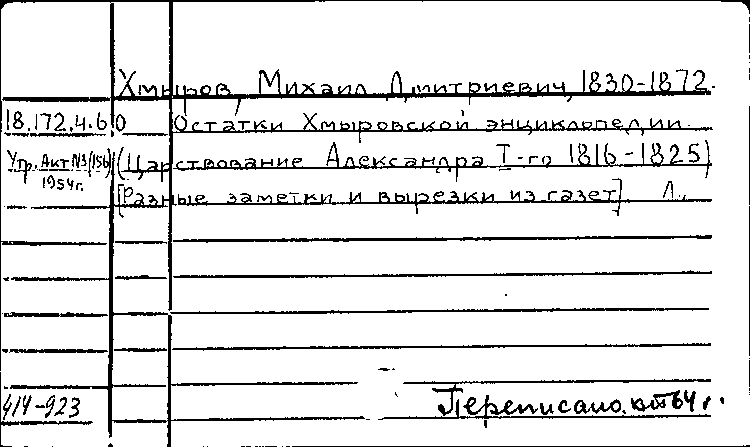 Хмыров, Михаил Дмитриевич, 1830-1872.
18.172.4.60 Остатки Хмыровской энциклопедии.
Утр. Акт №3/(156) (Царствование Александра I-го 1816-1825)
1954г.
[Разные заметки и вырезки из газет]. Л.,
414-923
Переписано. 64 г.